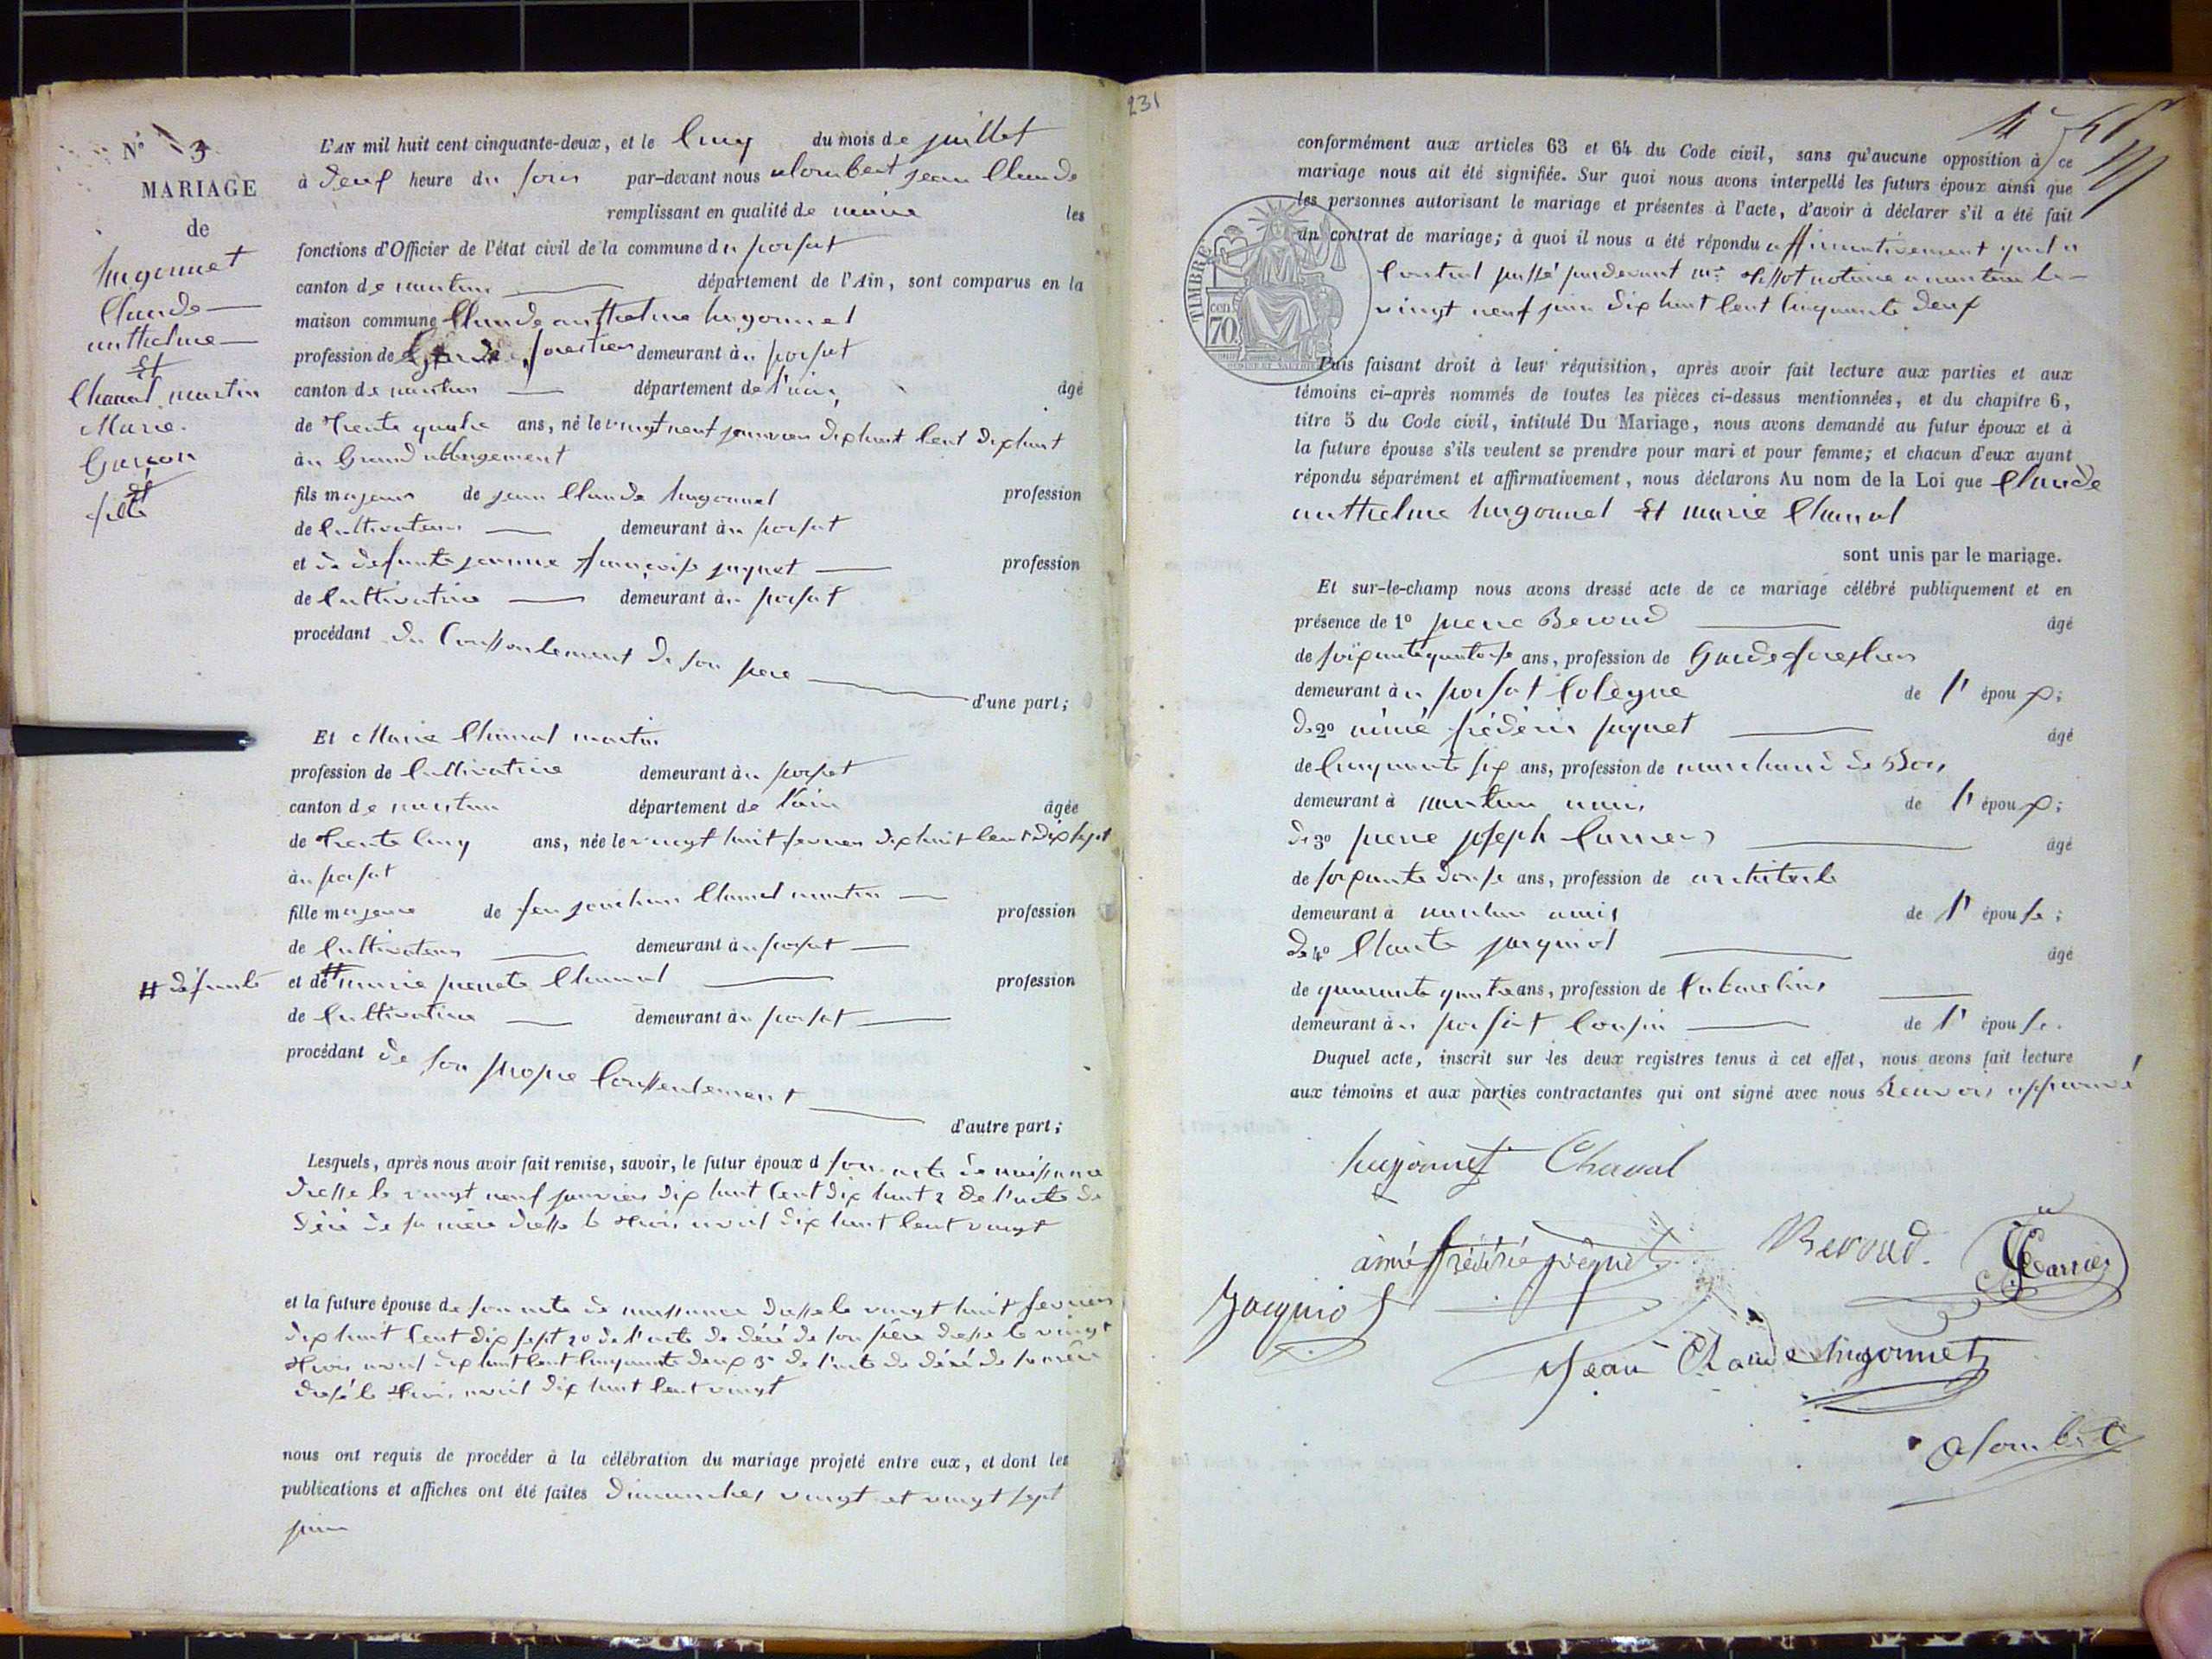 N° 3
MARIAGE
de
hugonnet
Claude
anthelme
Et
Chanal martin
Marie
Garçon
et
fille
L'AN mil huit cent cinquante-deux, et le cinq du mois de juillet
à deux heure du soir par-devant nous alombert jean Claude
remplissant en qualité de maire les
fonctions d'Officier de l'état civil de la commune du poisat
canton de nantua département de l'Ain, sont comparus en la
maison commune Claude anthelme hugonnet
profession de Garde forestier demeurant à poisat
canton de nantua département de l'ain, âgé
de trente quatre ans, né le vingt neuf janvier dix huit cent dix huit
au Grand abbergement
fils majeur de jean Claude hugonnet profession
de Cultivateur demeurant à poisat
et de defunte jeanne françoise juynet profession
de Cultivatrice demeurant à poisat
procédant du Consentement de son pere
d'une part;
Et Marie Chanal martin
profession de Cultivatrice demeurant à poisat
canton de nantua département de l'ain âgée
de trente cinq ans, née le vingt huit fevrier dix huit cent dix sept
à poisat
fille majeure de feu joachim Chanal martin profession
de Cultivateur demeurant à poisat
# défunte
et de # marie pierrete Chanal profession
de Cultivatrice demeurant à poisat
procédant de son propre Consentement
d'autre part;
Lesquels, après nous avoir fait remise, savoir, le futur époux d son acte de naissance
dresse le vingt neuf janvier dix huit cent dix huit 2 de l'acte de
décé de sa mère dresse le trois avril dix huit cent vingt
et la future épouse de son acte de naissance dresse le vingt huit fevrier
dix huit cent dix sept 2° de l'acte de décé de son père dresse le vingt
trois avril dix huit cent cinquante deux 3° de l'acte de décé de sa mère
dressé le trois avril dix huit cent vingt
nous ont requis de procéder à la célébration du mariage projeté entre eux, et dont les
publications et affiches ont été faites dimanches vingt et vingt sept
juin
231
conformément aux articles 63 et 64 du Code civil, sans qu'aucune opposition à ce
mariage nous ait été signifiée. Sur quoi nous avons interpellé les futurs époux ainsi que
les personnes autorisant le mariage et présentes à l'acte, d'avoir à déclarer s'il a été fait
un contrat de mariage; à quoi il nous a été répondu affirmativement quil a
Contrat passé pardevant mr notaire a nantua le
vingt neuf juin dix huit cent cinquante deux
TIMBRE
70
Puis faisant droit à leur réquisition, après avoir fait lecture aux parties et aux
témoins ci-après nommés de toutes les pièces ci-dessus mentionnées, et du chapitre 6,
titre 5 du Code civil, intitulé Du Mariage, nous avons demandé au futur époux et à
la future épouse s'ils veulent se prendre pour mari et pour femme; et chacun d'eux ayant
répondu séparément et affirmativement, nous déclarons Au nom de la Loi que Claude
anthelme hugonnet Et marie Chanal
sont unis par le mariage.
Et sur-le-champ nous avons dressé acte de ce mariage célébré publiquement et en
présence de 1° pierre Beroud âgé
de soixante quatorse ans, profession de Garde forestier
demeurant à poisat Colegue de l'époux;
de 2° aimé frédéric juynet âgé
de cinquante six ans, profession de marchand de Bois
demeurant à nantua amis de l'époux;
de 3° pierre joseph Carrier âgé
de soixante douse ans, profession de architecte
demeurant à nantua amis de l'épouse;
de 4° Claude jacquiot âgé
de quarante quatre ans, profession de Cabaretier
demeurant à poisat Cousin de l'épouse.
Duquel acte, inscrit sur les deux registres tenus à cet effet, nous avons fait lecture
aux témoins et aux parties contractantes qui ont signé avec nous Renvois approuvé
hugonnet Chanal
aimé frédéric juynet Beroud. Carrier
Jacquiot
Jean Claude hugonnet
alombert